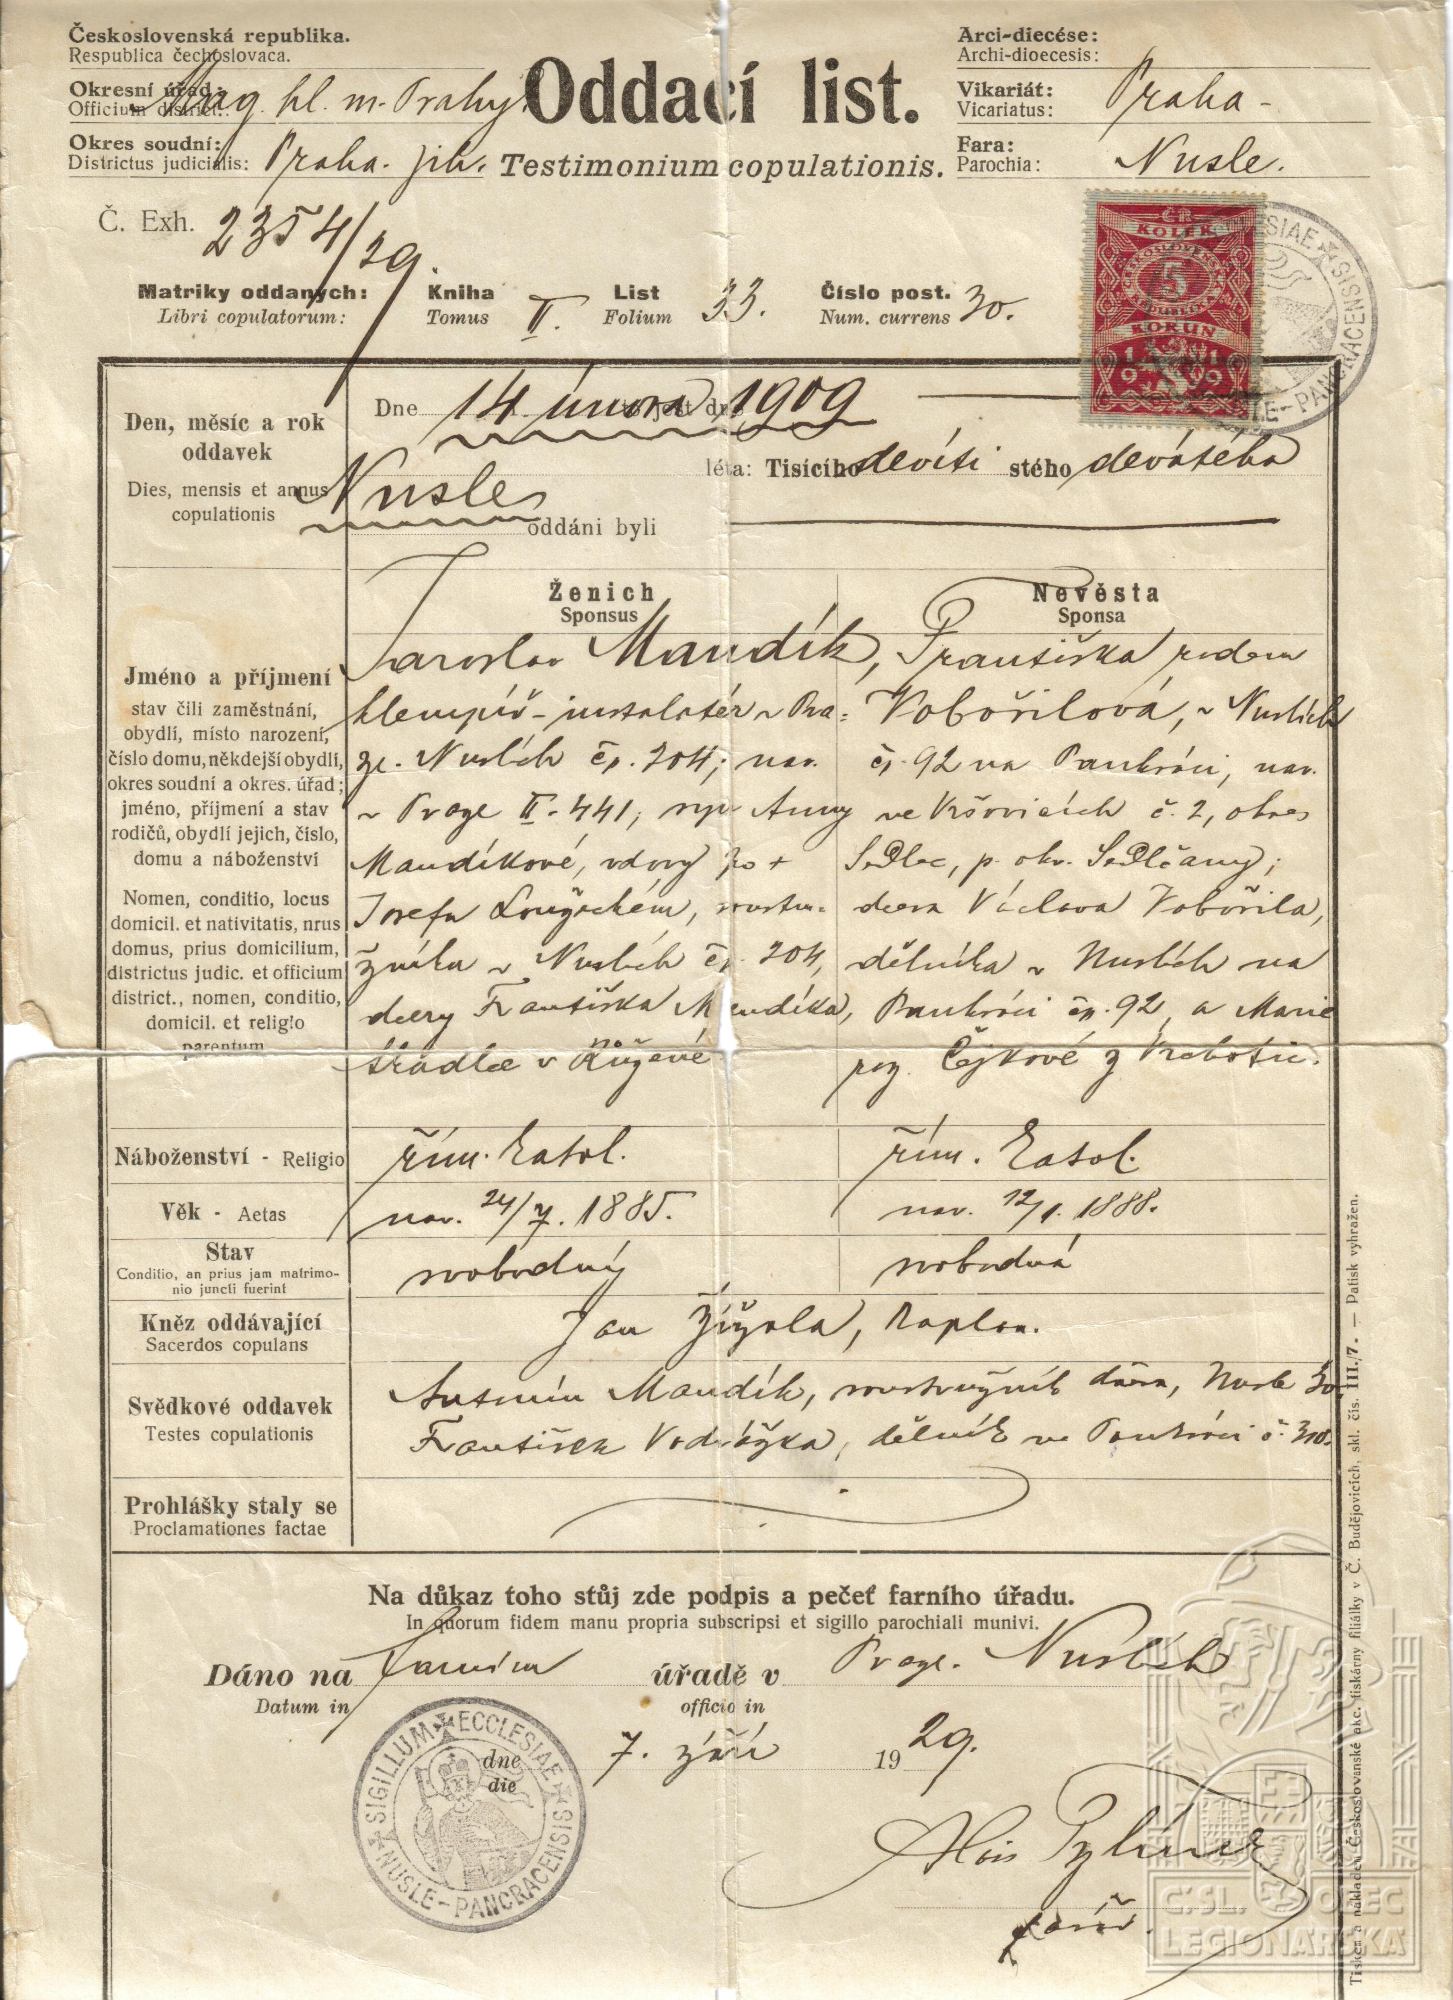 Československá republika.
Respublica čechoslovaca.
Okresní úřad: Mag. hl. m. Prahy
Officium district.:
Okres soudní: Praha. jih.
Districtus judicialis:
Oddací list.
Testimonium copulationis.
Arci-diecése:
Archi-dioecesis:
Vikariát: Praha -
Vicariatus:
Fara: Nusle.
Parochia:
Č. Exh. 2354/29.
ČR
KOLEK
5
KORUN
1919
Matriky oddaných: Kniha II. List 33. Číslo post. 30.
Libri copulatorum: Tomus Folium Num. currens
Den, měsíc a rok
oddavek
Dies, mensis et annus
copulationis
Dne 14 února 1909 to jest dne
léta: Tisícího devíti stého devátého
Nusle oddáni byli
Ženich
Sponsus
Nevěsta
Sponsa
Jméno a příjmení
stav čili zaměstnání,
obydlí, místo narození,
číslo domu, někdejší obydlí,
okres soudní a okres. úřad;
jméno, příjmení a stav
rodičů, obydlí jejich, číslo,
domu a náboženství
Nomen, conditio, locus
domicil. et nativitatis, nrus
domus, prius domicilium,
districtus judic. et officium
district., nomen, conditio,
domicil. et religio
parentum
Jaroslav Mandík,
klempíř-instalatér v Pra=
ze. Nuslích čp. 204; nar.
v Praze II-441; syn Anny
Mandíkové, vdovy po +
Josefu, soustru=
žníku v Nuslích čp. 204,
dcery Františka Mandíka,
v Růžové
Františka rodem
Vobořilová, v Nuslích
čp. 92 na Pankráci, nar.
ve Vršovicích č. 2, okres
Sedlec, p. okr. Sedlčany;
dcera Václava Vobořila,
dělníka v Nuslích na
Pankráci čp. 92, a Marie
roz. Čejkové z
Náboženství - Religio
řím. katol.
řím. katol.
Věk - Aetas
nar. 24/7. 1885.
nar. 12/1. 1888.
Stav
Conditio, an prius jam matrimo-
nio juncti fuerint
svobodný
svobodná
Kněz oddávající
Sacerdos copulans
Jan Žížala, kaplan.
Svědkové oddavek
Testes copulationis
Antonín Mandík, soustružník
František Vodrážka, dělník na Pankráci
Prohlášky staly se
Proclamationes factae
Na důkaz toho stůj zde podpis a pečeť farního úřadu.
In quorum fidem manu propria subscripsi et sigillo parochiali munivi.
Dáno na farním úřadě v Praze. Nuslích
Datum in officio in
dne 7. září 1929.
die
SIGILLUM ECCLESIAE
NUSLE-PANCRACENSIS
Alois
farář.
Tiskem a nákladem Československé akc. tiskárny filiálky v Č. Budějovicích, skl. čís. III./7. — Patisk vyhražen.
Č.SL. OBEC
LEGIONÁŘSKÁ